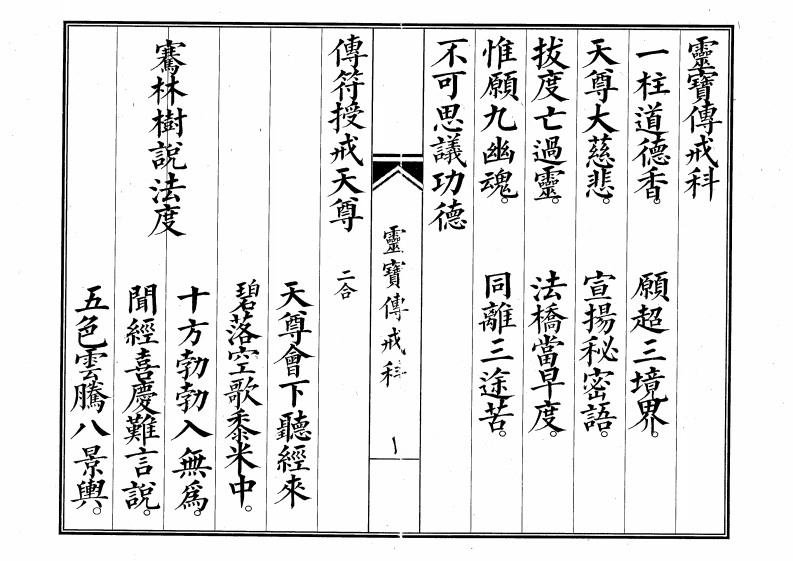 靈寶傳戒科
一柱道德香。 願超三境界。
天尊大慈悲。 宣揚秘密語。
拔度亡過靈。 法橋當早度。
惟願九幽魂。 同離三途苦。
不可思議功德
靈寶傳戒科 1
傳符授戒天尊 二合
天尊會下聽經來
碧落空歌黍米中。
騫林樹說法度
十方勃勃入無爲。
聞經喜慶難言說。
五色雲騰八景輿。